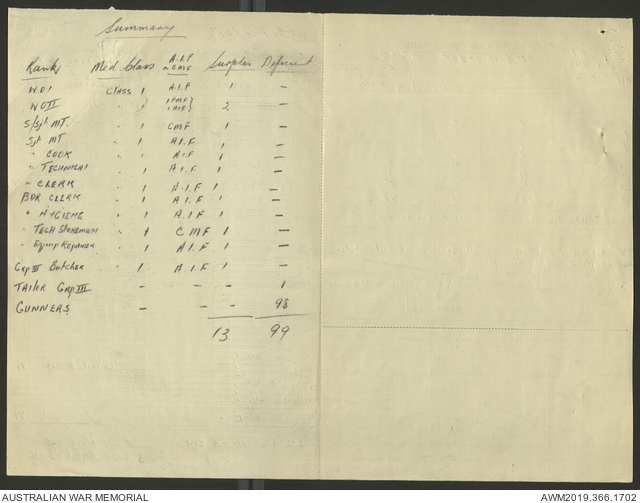 Summary
Rank Med Class A.I.F or CMF Surplus Deficient
W.O.I CLASS 1 A.I.F 1 –
WO II " } 1 1 PMF } 1 AIF } 2 –
S/Sjt MT. " 1 CMF 1 –
Sjt MT " 1 A.I.F 1 –
" COOK " 1 A.I.F 1 –
" TECHNICAL " 1 A.I.F 1 –
" CLERK " 1 A.I.F 1 –
BDR CLERK " 1 A.I.F 1 –
" HYGIENE " 1 A.I.F 1 –
" TECH STOREMAN " 1 C MF 1 –
" Equip Repairer " 1 A.I.F 1 –
Grp III Butcher " 1 A.I.F 1 –
TAILOR Grp III – – – 1
GUNNERS – – – 98
13 99
AUSTRALIAN WAR MEMORIAL AWM2019.366.1702